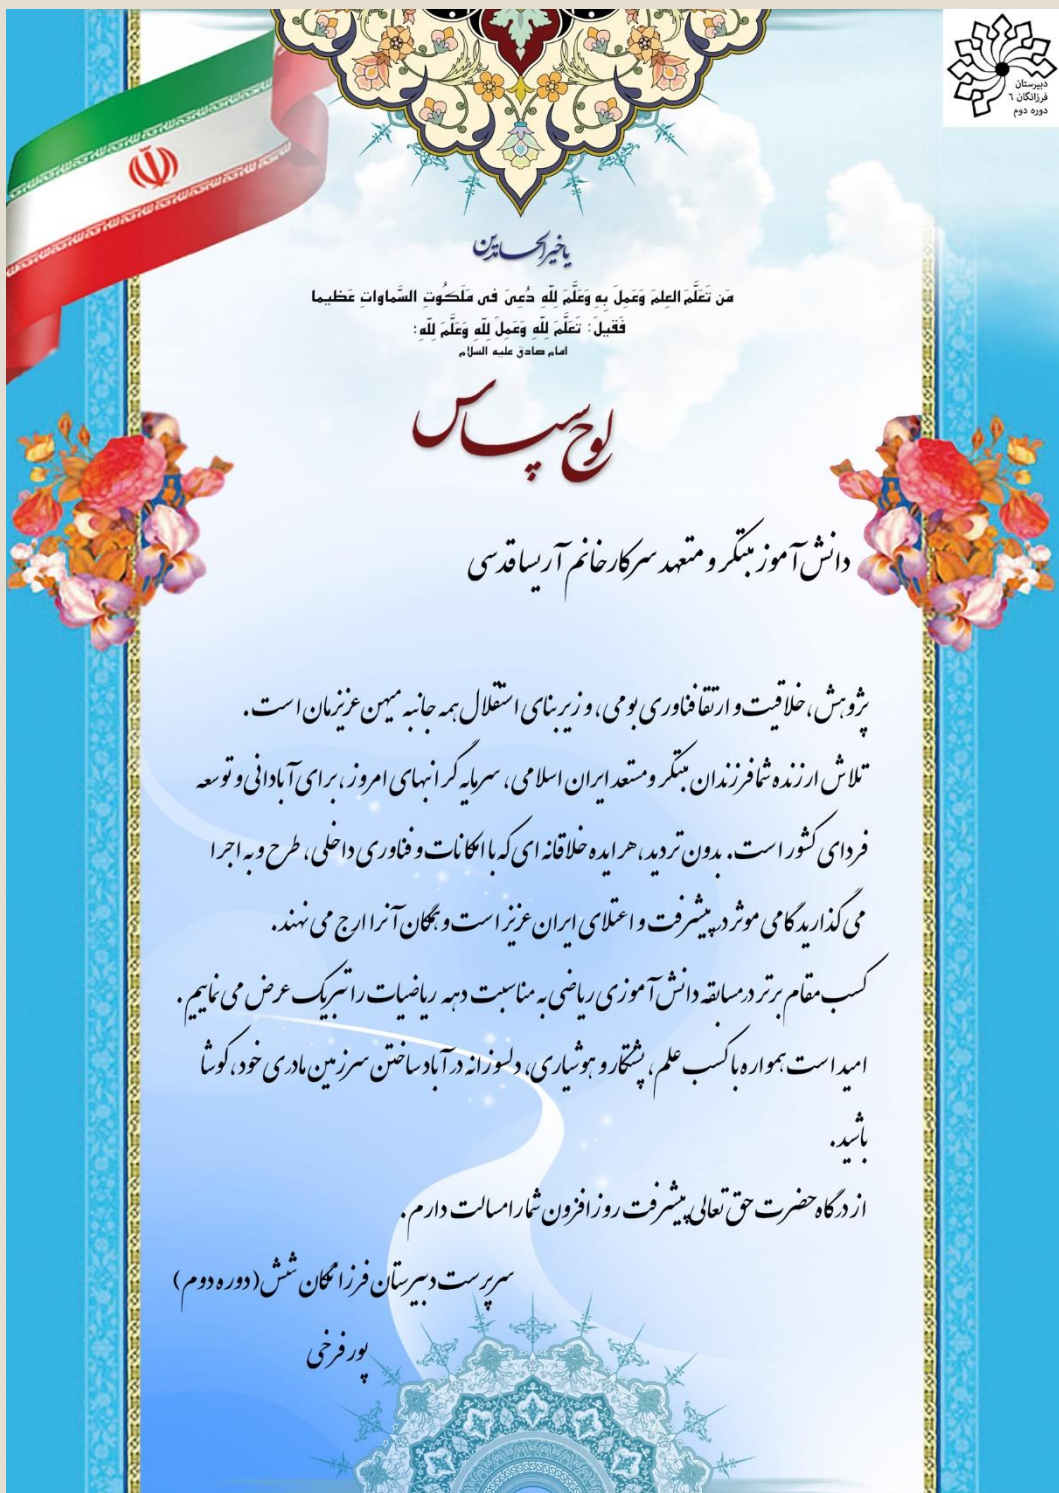 دبیرستان
فرزانگان ٦
دوره دوم
یا خیر الحامدین
مَن تَعَلَّمَ العِلمَ وَعَمِلَ بِهِ وَعَلَّمَ لِلّهِ دُعِیَ فی مَلَکُوتِ السَّماواتِ عَظیما
فَقیلَ: تَعَلَّمَ لِلّهِ وَعَمِلَ لِلّهِ وَعَلَّمَ لِلّهِ:
امام صادق علیه السلام
لوح سپاس
دانش آموز مبتکر و متعهد سرکار خانم آریسا قدسی
پژوهش، خلاقیت و ارتقا فناوری بومی، و زیر بنای استقلال همه جانبه میهن عزیزمان است.
تلاش ارزنده شما فرزندان مبتکر و مستعد ایران اسلامی، سرمایه گرانبهای امروز، برای آبادانی و توسعه
فردای کشور است. بدون تردید، هر ایده خلاقانه ای که با امکانات و فناوری داخلی، طرح و به اجرا
می گذارید گامی موثر در پیشرفت و اعتلای ایران عزیز است و همگان آنرا ارج می نهند.
کسب مقام برتر در مسابقه دانش آموزی ریاضی به مناسبت دهه ریاضیات را تبریک عرض می نماییم.
امید است همواره با کسب علم، پشتکار و هوشیاری، دلسوزانه در آباد ساختن سرزمین مادری خود، کوشا
باشید.
از درگاه حضرت حق تعالی پیشرفت روز افزون شما را مسالت دارم.
سرپرست دبیرستان فرزانگان شش (دوره دوم)
پور فرخی